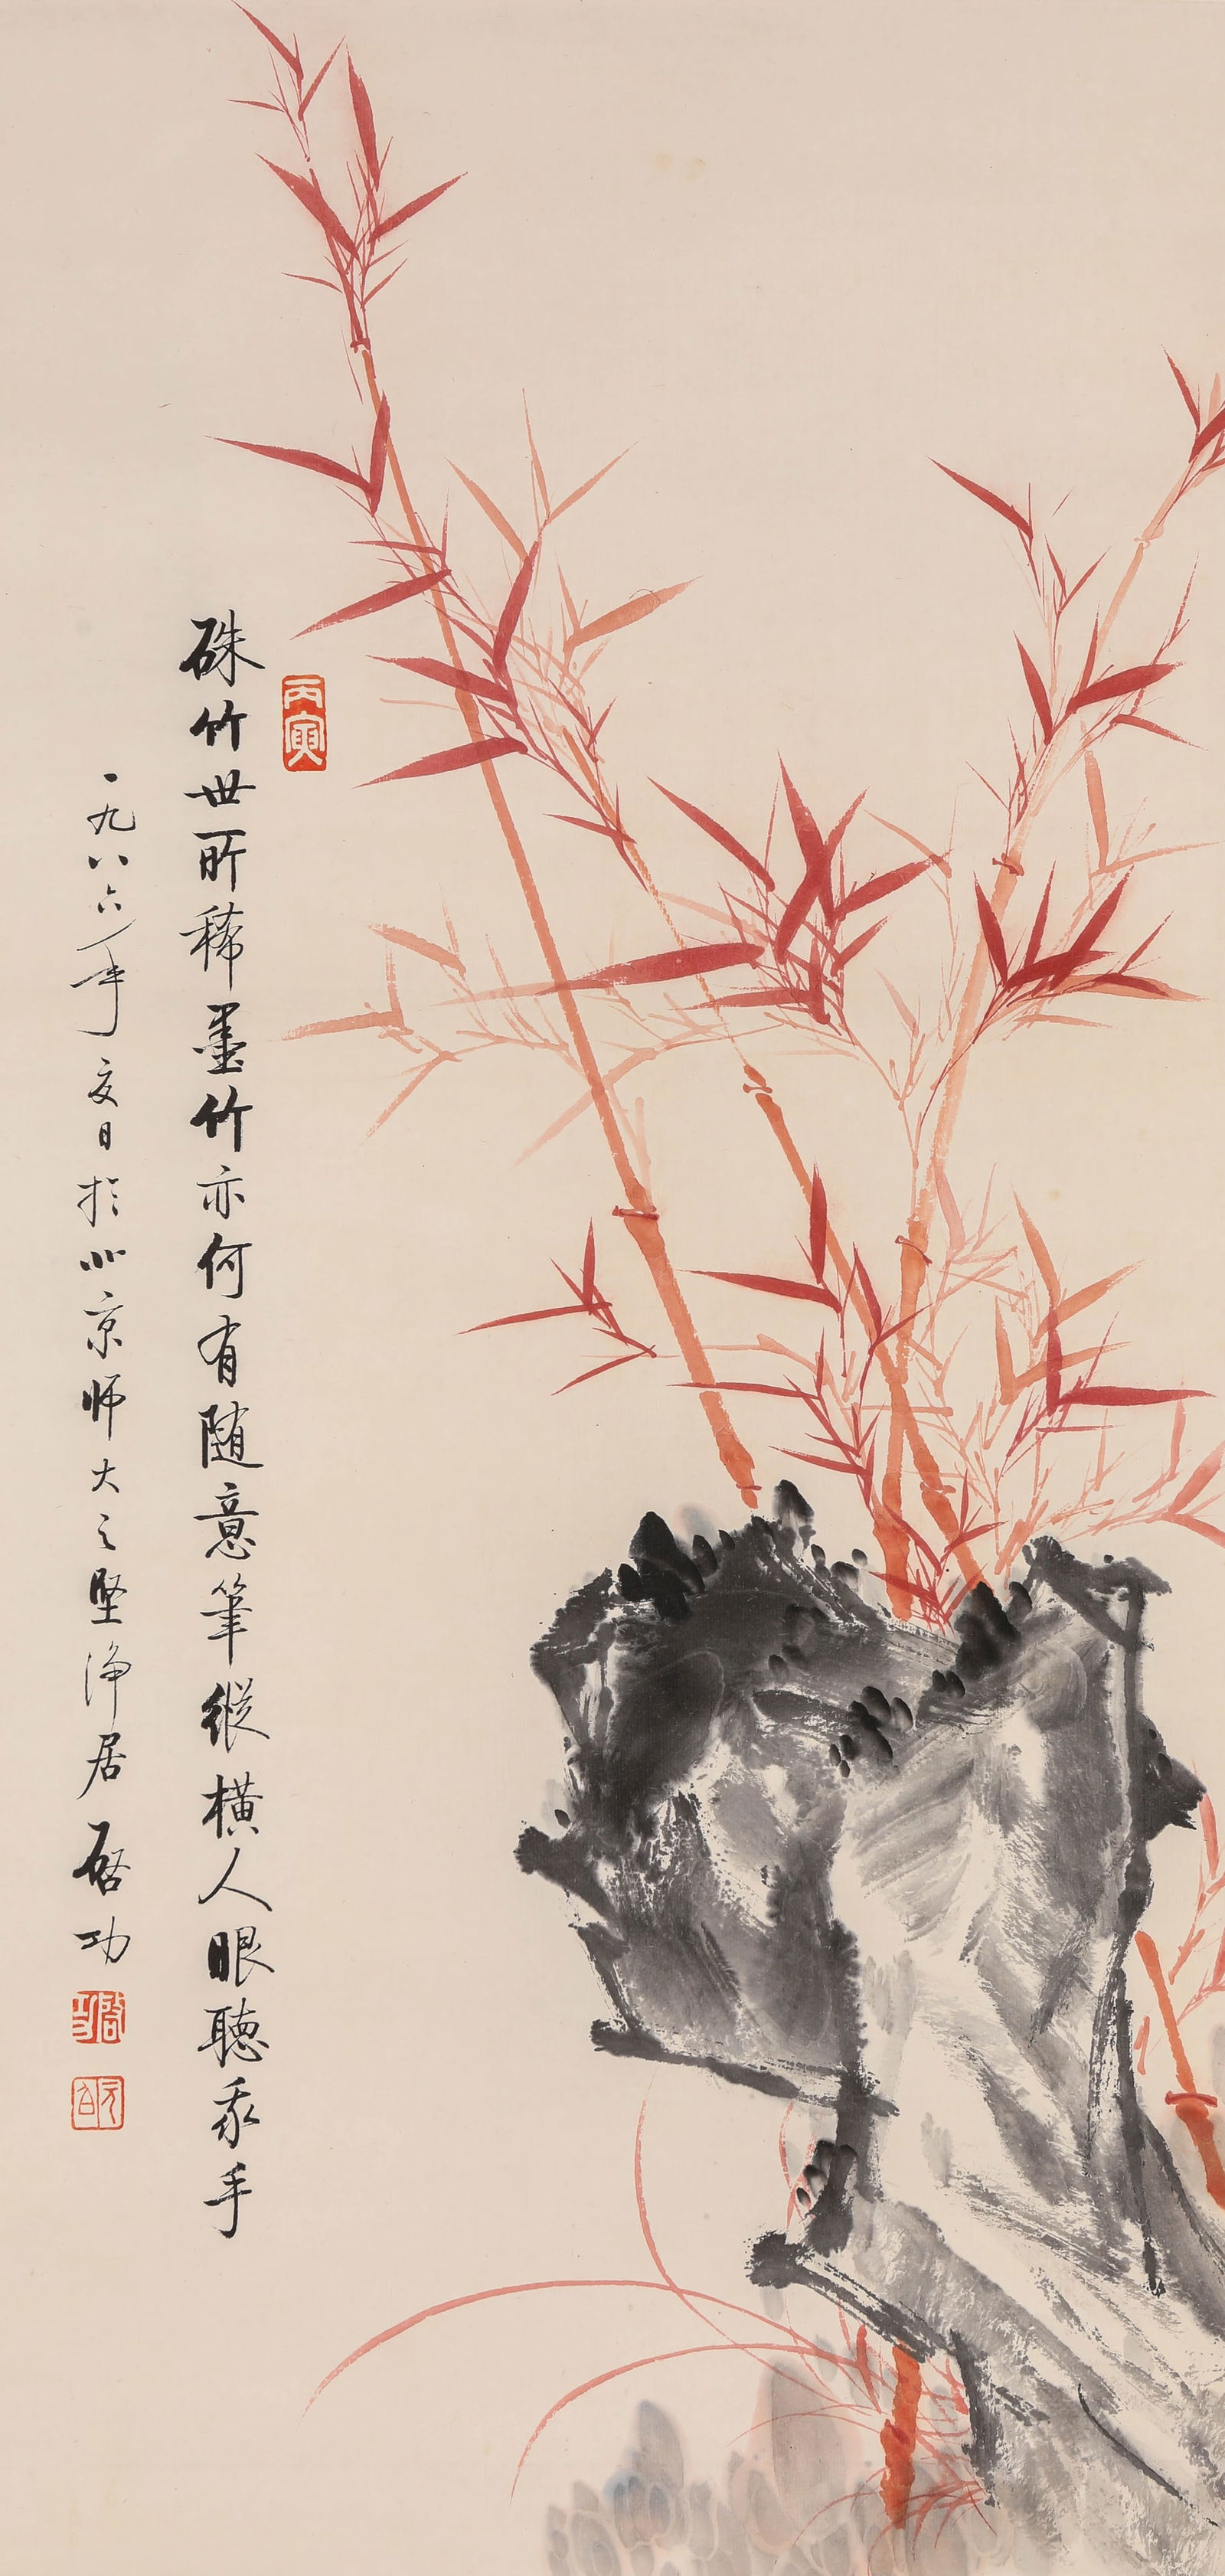 硃竹世所稀墨竹亦何有随意筆縱橫人眼聽我手
一九八六年夏日於北京师大之坚净居启功
丙寅